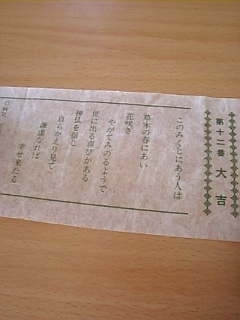 第十二番 大吉
このみくじにあう人は
草木の春にあい
花咲き
やがてみのるようで
世に出る喜びがある
神仏を信じ
自らかえり見て、
謙虚なれば
幸せ来たる